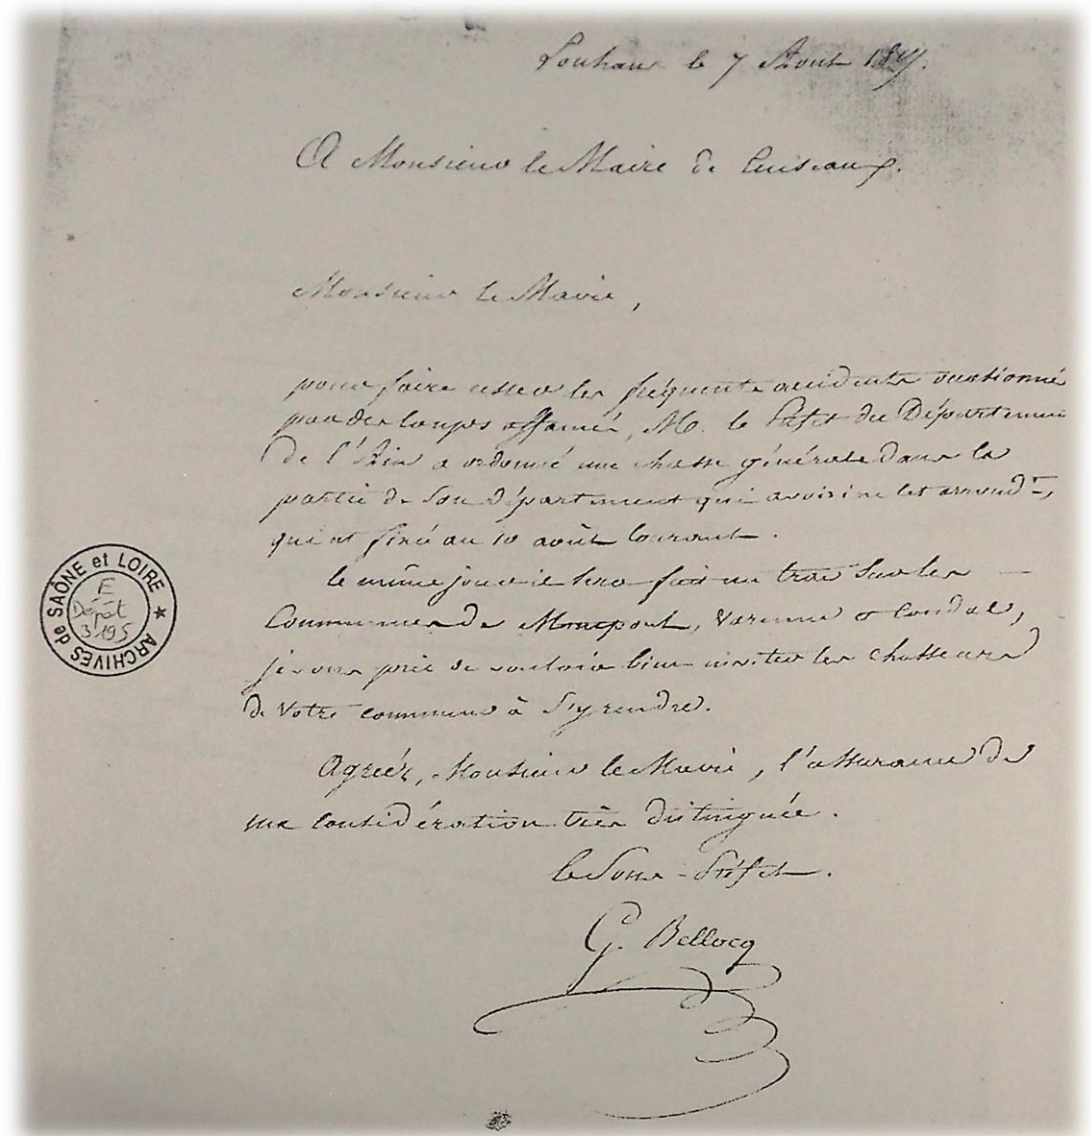 Louhans le 7 Août
A Monsieur le Maire de Cuiseaux.
Monsieur le Maire,
pour faire cesser les fréquents accidents occasionnés
par des loups affamés, M. le Préfet du Département
de l'Ain a ordonné une chasse générale dans la
partie de son département qui avoisine cet arrond.t,
qui est fixée au 10 août courant.
le même jour il sera fait un trac sur les
Communes de Montpont, Varenne et Condal,
je vous prie de vouloir bien inviter les chasseurs
de votre commune à s'y rendre.
Agréez, Monsieur le Maire, l'assurance de
ma considération très distinguée.
le Sous-Préfet.
G. Bellocq
ARCHIVES de SAÔNE et LOIRE ★
E
Dépôt
3195